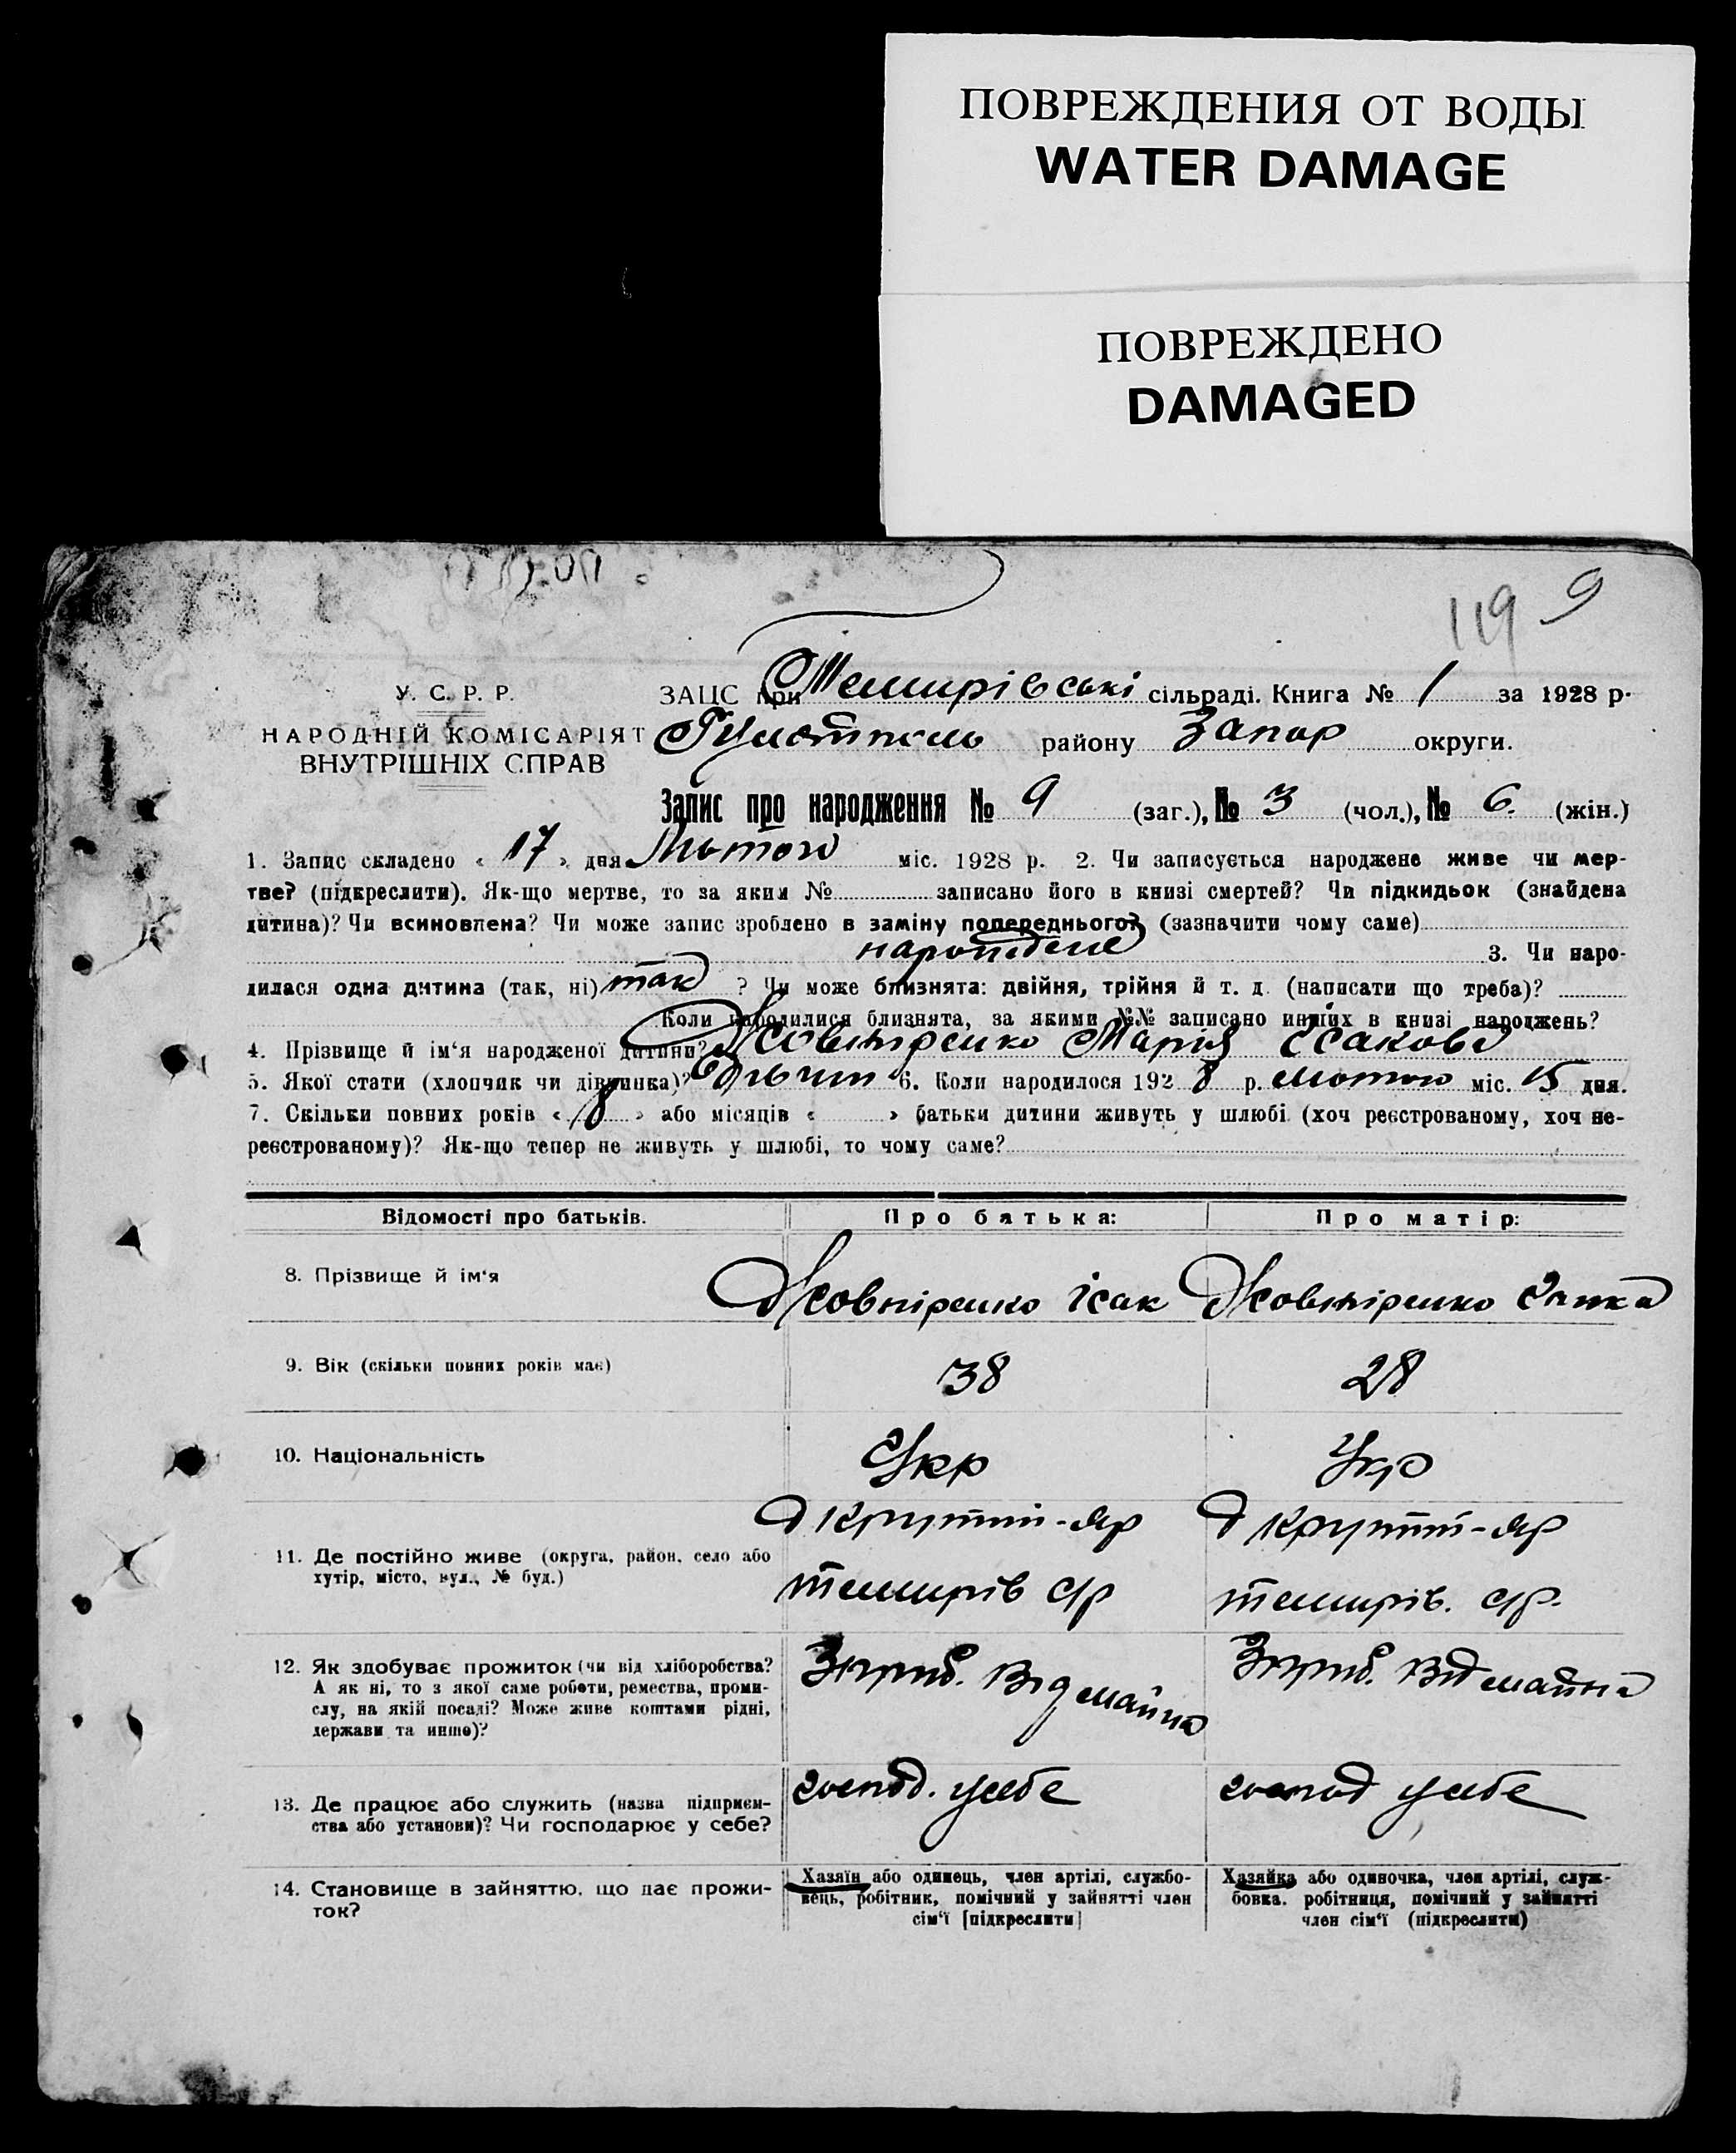 ПОВРЕЖДЕНИЯ ОТ ВОДЫ
WATER DAMAGE
ПОВРЕЖДЕНО
DAMAGED
119 9
У. С. Р. Р.
НАРОДНІЙ КОМІСАРІЯТ
ВНУТРІШНІХ СПРАВ
ЗАЦС при Темирівські сільраді. Книга № 1 за 1928 р.
Гуляйпіль району Запор округи.
Запис про народження № 9 (заг.), № 3 (чол.), № 6. (жін.)
1. Запис складено « 17 » дня Лютого міс. 1928 р. 2. Чи записується народжене живе чи мер-
тве? (підкреслити). Як-що мертве, то за яким № записано його в книзі смертей? Чи підкидьок (знайдена
дитина)? Чи всиновлена? Чи може запис зроблено в заміну попереднього? (зазначити чому саме)
народжене 3. Чи наро-
дилася одна дитина (так, ні) так ? Чи може близнята: двійня, трійня й т. д. (написати що треба)?
Коли народилися близнята, за якими №№ записано инших в книзі народжень?
4. Прізвище й ім‘я народженої дитини? Жовніренко Марія Ісакова
5. Якої стати (хлопчик чи дівчинка)? 6. Коли народилося 192 8 р. лютого міс. 15 дня.
7. Скільки повних років « 8 » або місяців « » батьки дитини живуть у шлюбі (хоч реєстрованому, хоч не-
реєстрованому)? Як-що тепер не живуть у шлюбі, то чому саме?
Відомості про батьків. Про батька: Про матір:
8. Прізвище й ім‘я Жовніренко Ісак Жовніренко Ганка
9. Вік (скільки повних років має) 38 28
10. Національність Укр Укр
11. Де постійно живе (округа, район, село або
хутір, місто, вул., № буд.)
д Крутий-Яр д Крутий-Яр
темирів с/р темирів. с/р.
12. Як здобуває прожиток (чи від хліборобства?
А як ні, то з якої саме роботи, ремества, проми-
слу, на якій посаді? Може живе коштами рідні,
держави та инше)?
13. Де працює або служить (назва підприєм-
ства або установи)? Чи господарює у себе?
господ. у себе господ у себе
14. Становище в зайняттю, що дає прожи-
ток?
Хазяїн або одинець, член артілі, службо-
вець, робітник, помічний у зайнятті член
сім‘ї [підкреслити]
Хазяйка або одиночка, член артілі, служ-
бовка. робітниця, помічний у зайнятті
член сім‘ї (підкреслити)